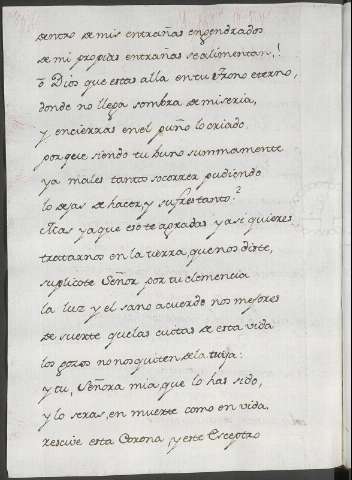 dentro de mis entrañas engendrados
de mi propias entrañas se alimentan,!
ô Dios que estas allà en tu Trono eterno,
donde no llega sombra de miseria,
y encierras en el puño lo criado
porque siendo tu buno summamente
ya males tanto socorrer pudiendo
lo dejas de hacer, y sufres tanto?
Mas ya que eso te agradas y asi quieres
tratarnos en la tierra que nos diste,
suplicote Señor por tu clemencia
la luz y el sano acuerdo nos mejores
de suerte que las cuitas de esta vida
los gozos no nos quiten de la tuya:
y tu, Señora mia, que lo has sido,
y lo seras, en muerte como en vida,
rescive esta Corona, y este Esceptro